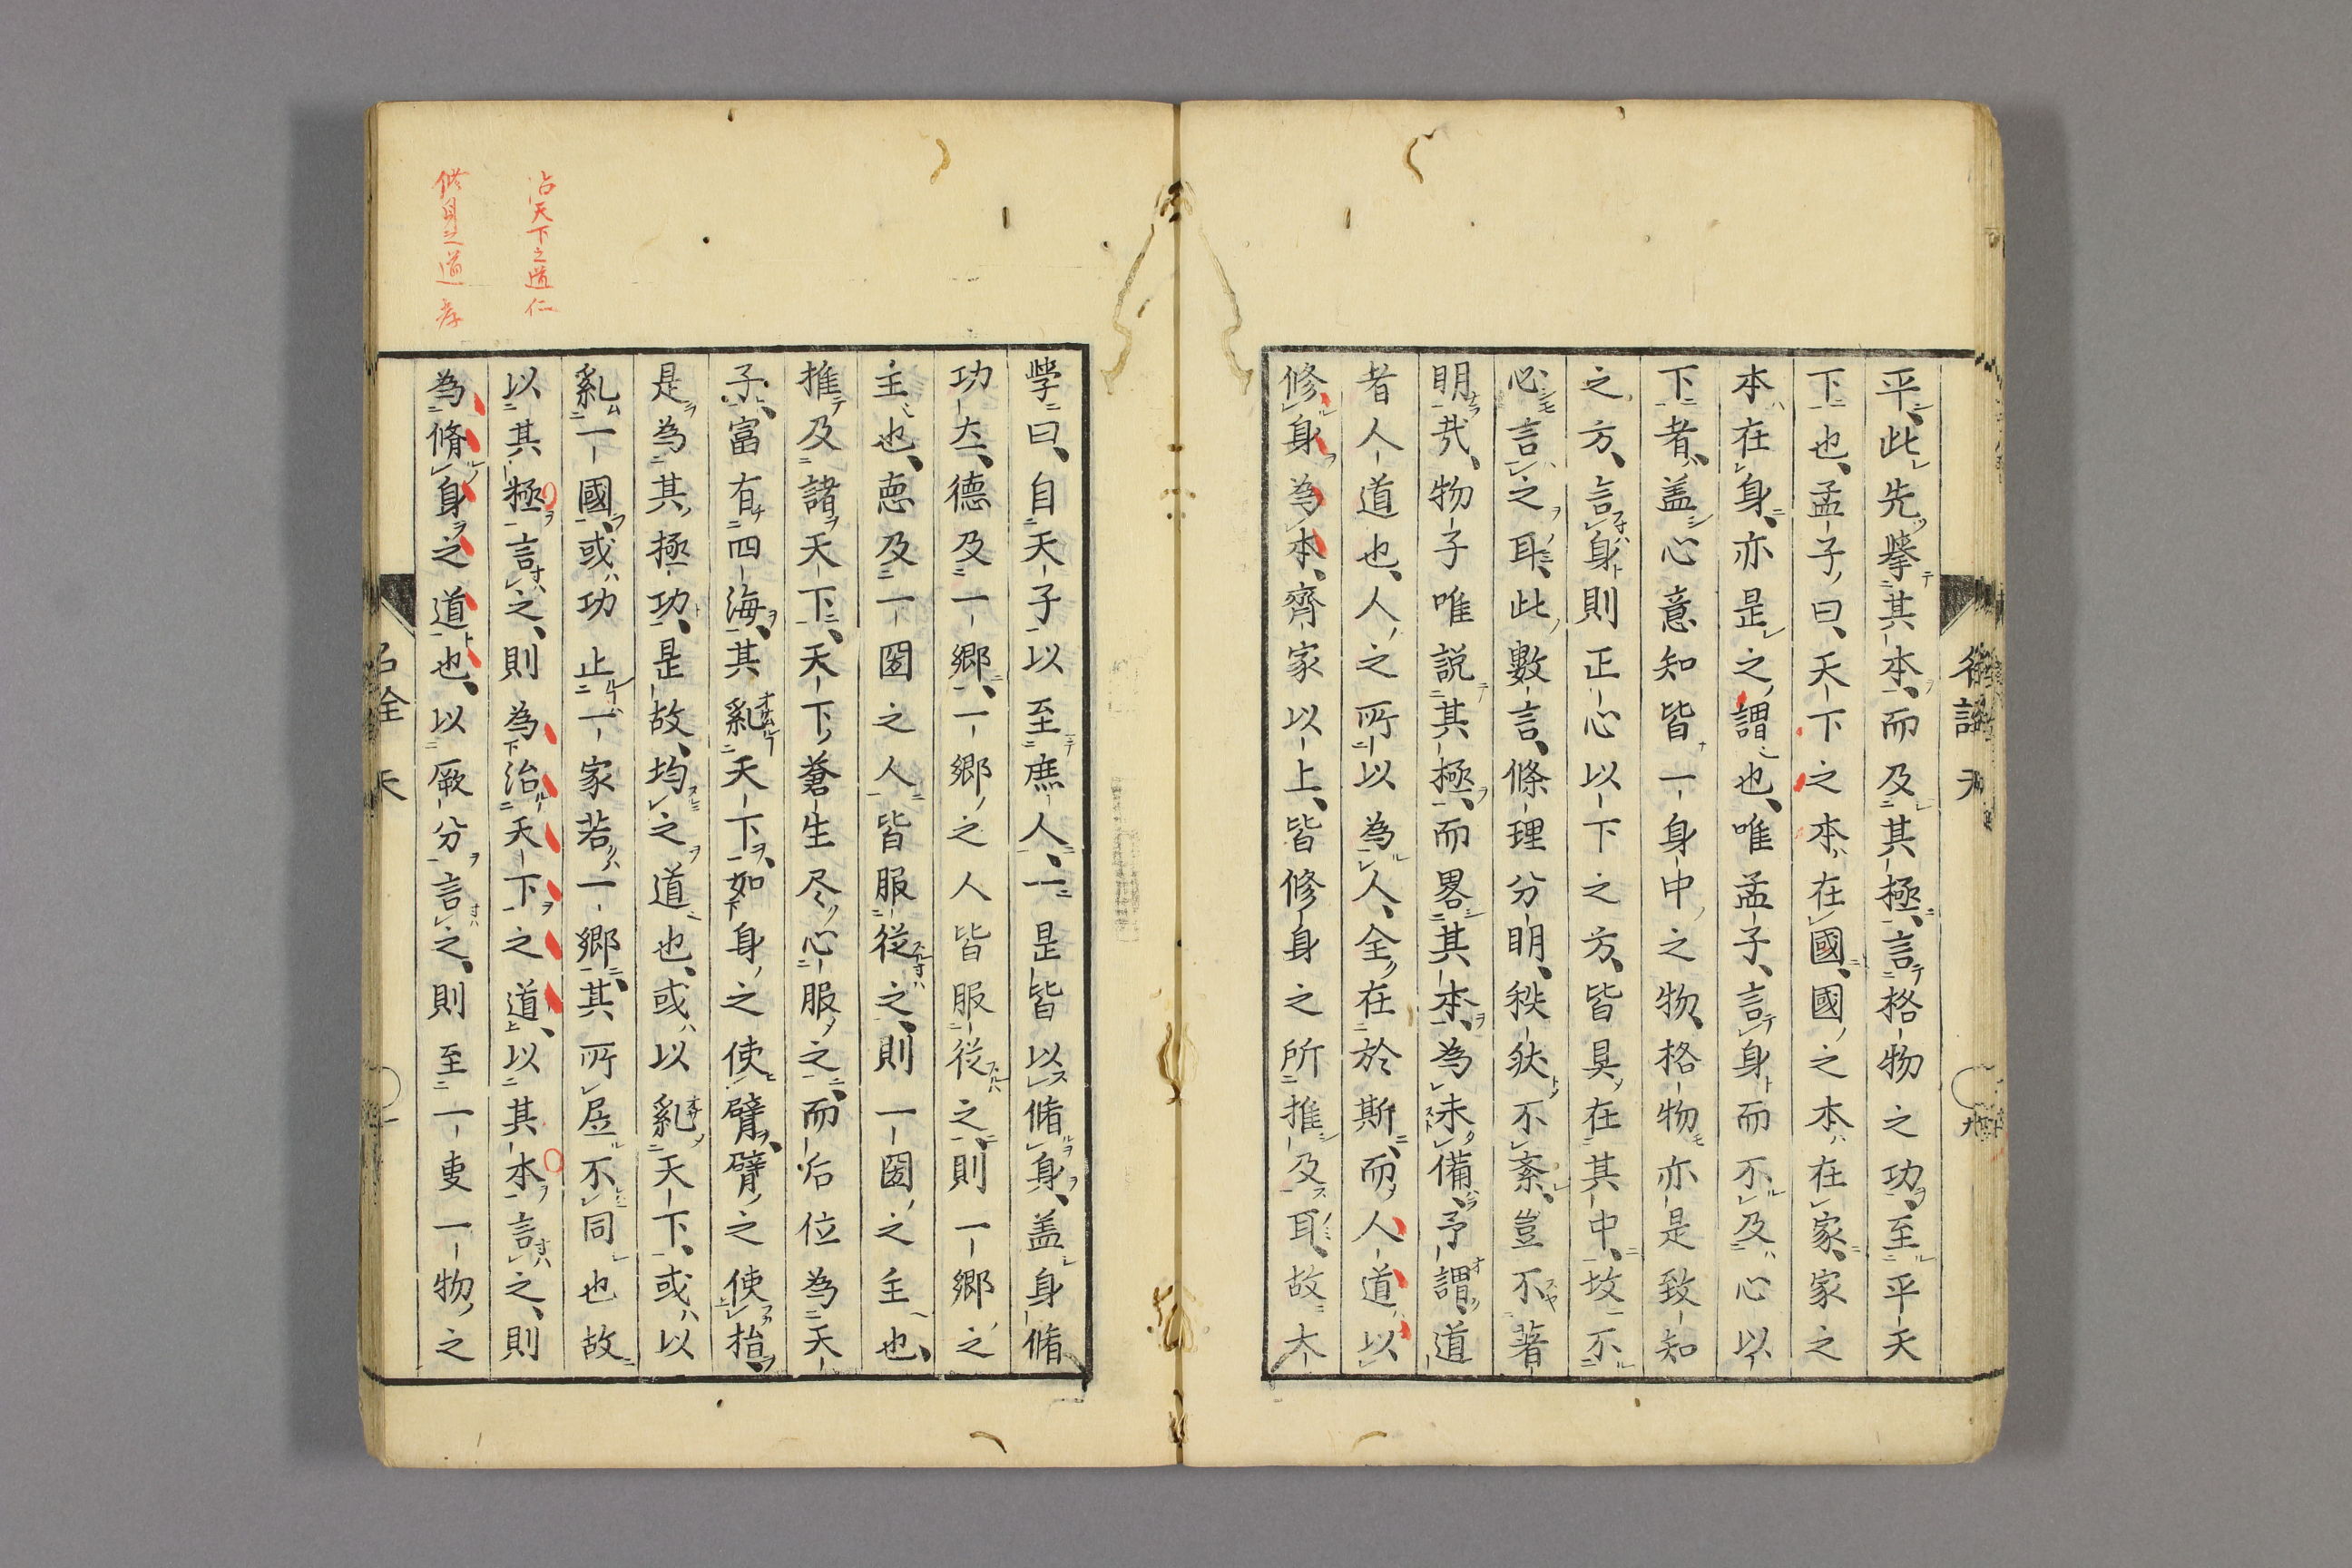 平、此先擧其本、而及其極、言格物之功、至平天
下也、孟子曰、天下之本、在國、國之本、在家、家之
本在身、亦是之謂也、唯孟子、言身而不及心以
下者、盖心意知皆一身中之物、格物亦是致知
之方、言身則正心以下之方、皆具在其中、故不
心言之耳、此數言、條理分明、秩狄不紊、豈不著
明哉、物子唯説其極、而畧其本、為未備、予謂、道
者人道也、人之所以為人、全在於斯、而人道、以
修身為本、齊家以上、皆修身之所推及耳、故大
學曰、自天子以至庶人、一是皆以脩身、盖身脩
功大、德及一鄉、一鄉之人皆服従之、則一鄉之
主也、悳及一圀之人皆服従之、則一圀之主也、
推及諸天下、天下蒼生尽心服之、而后位為天
子、富有四海、其亂天下、如身之使臂、臂之使指、
是為其極功、是故、均之道也、或以亂天下、或以
亂一國、或功止一家若一鄉、其所居不同也故
以其極言之、則為治天下之道、以其本言之、則
為脩身之道也、以厥分言之、則至一叓一物之
治天下之道仁
修身之道 孝